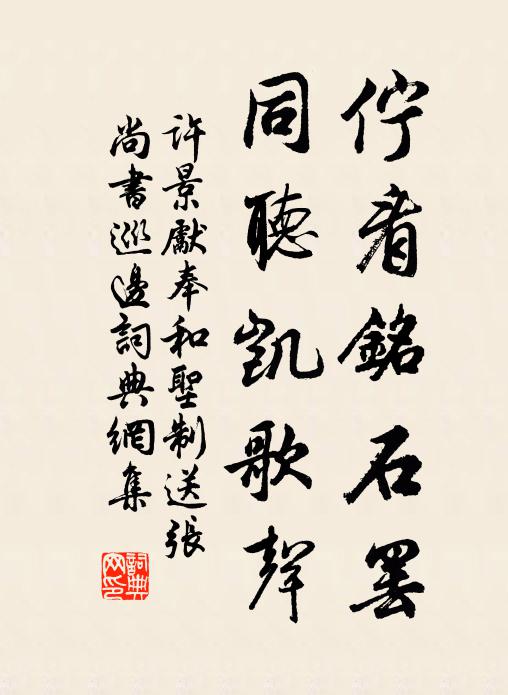 佇看銘石罷
同聽凱歌聲
許景獻奉和聖制送張
尚書巡邊詞典網集
詞典网印